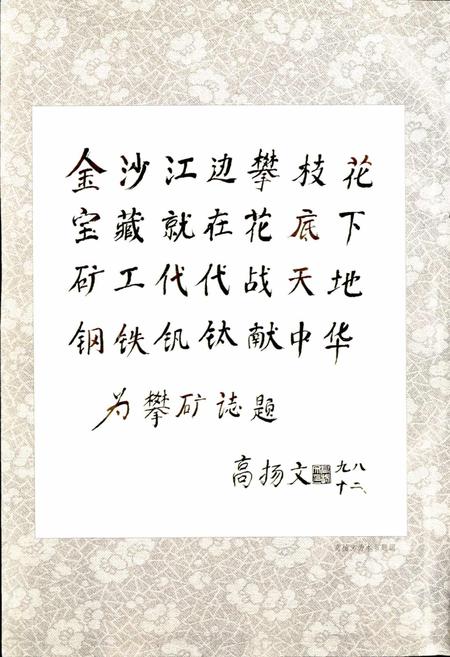 金沙江边攀枝花
宝藏就在花底下
矿工代代战天地
钢铁钒钛献中华
为攀矿誌题
高扬文
九八
十二
高扬文为本书题词